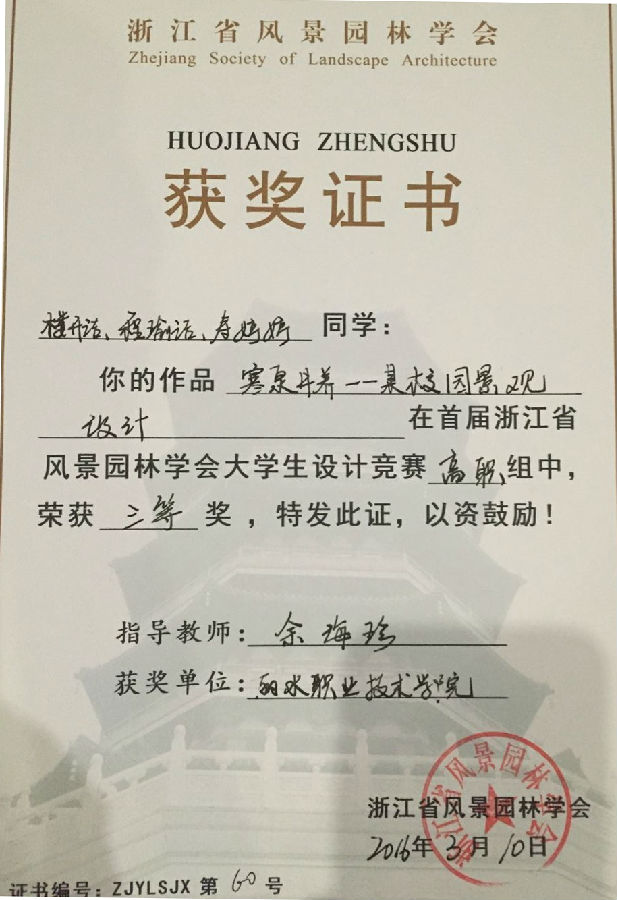 浙江省风景园林学会
Zhejiang Society of Landscape Architecture
HUOJIANG ZHENGSHU
获奖证书
同学：
你的作品 寒泉井养——某校园景观
设计 在首届浙江省
风景园林学会大学生设计竞赛 高职 组中，
荣获 三等 奖，特发此证，以资鼓励！
指导教师：余海珍
获奖单位：丽水职业技术学院
浙江省风景园林学会
浙江省风景园林学会
2016年3月10日
证书编号：ZJYLSJX 第 60 号